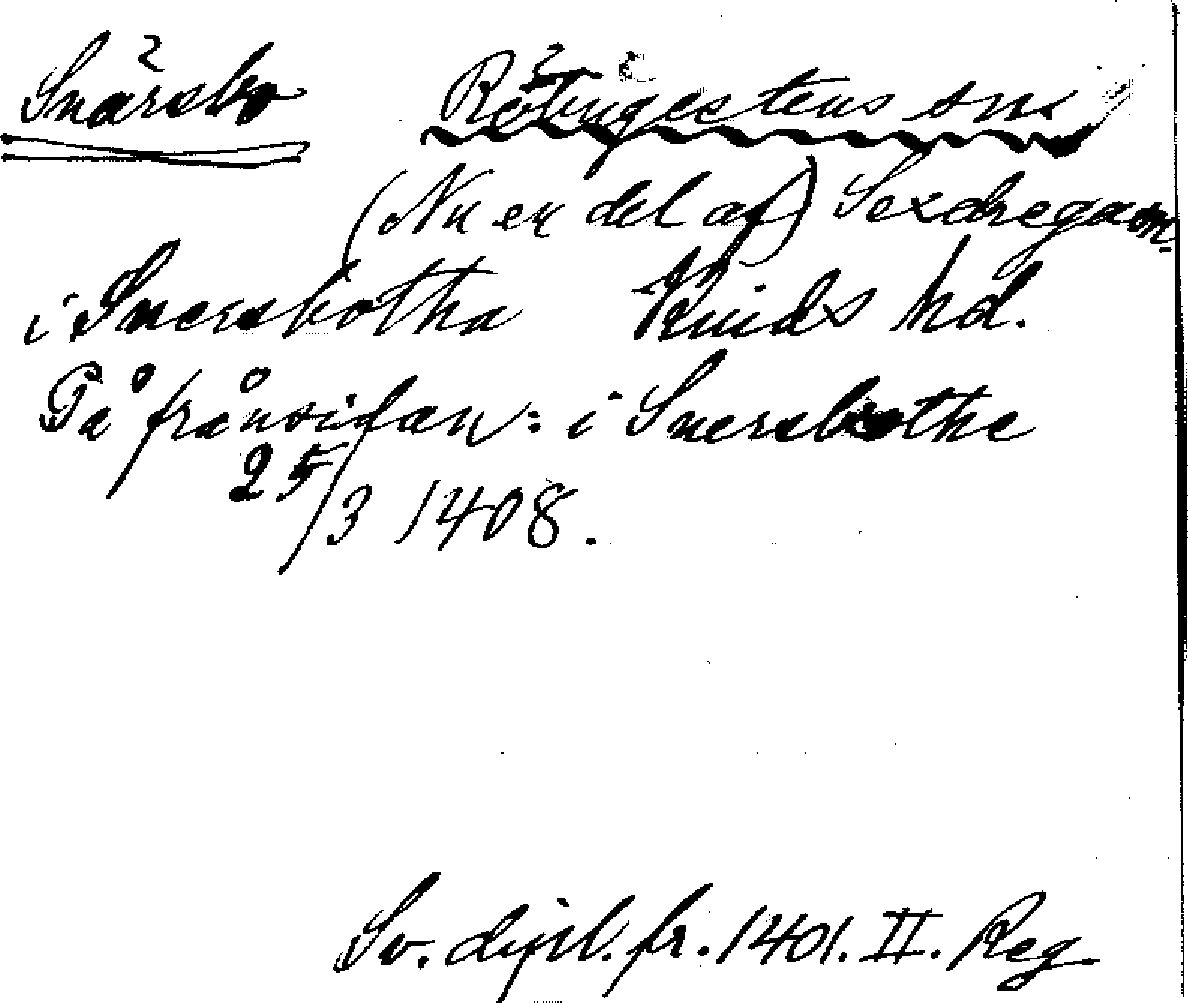 Snärsbo Rölingestens sn.
(Nu en del af) Sexdrega sn.
i Snersbotha Kinds hd.
På frånsidan: i Snersbothe
25/3 1408.
Sv. dipl. fr. 1401. II. Reg